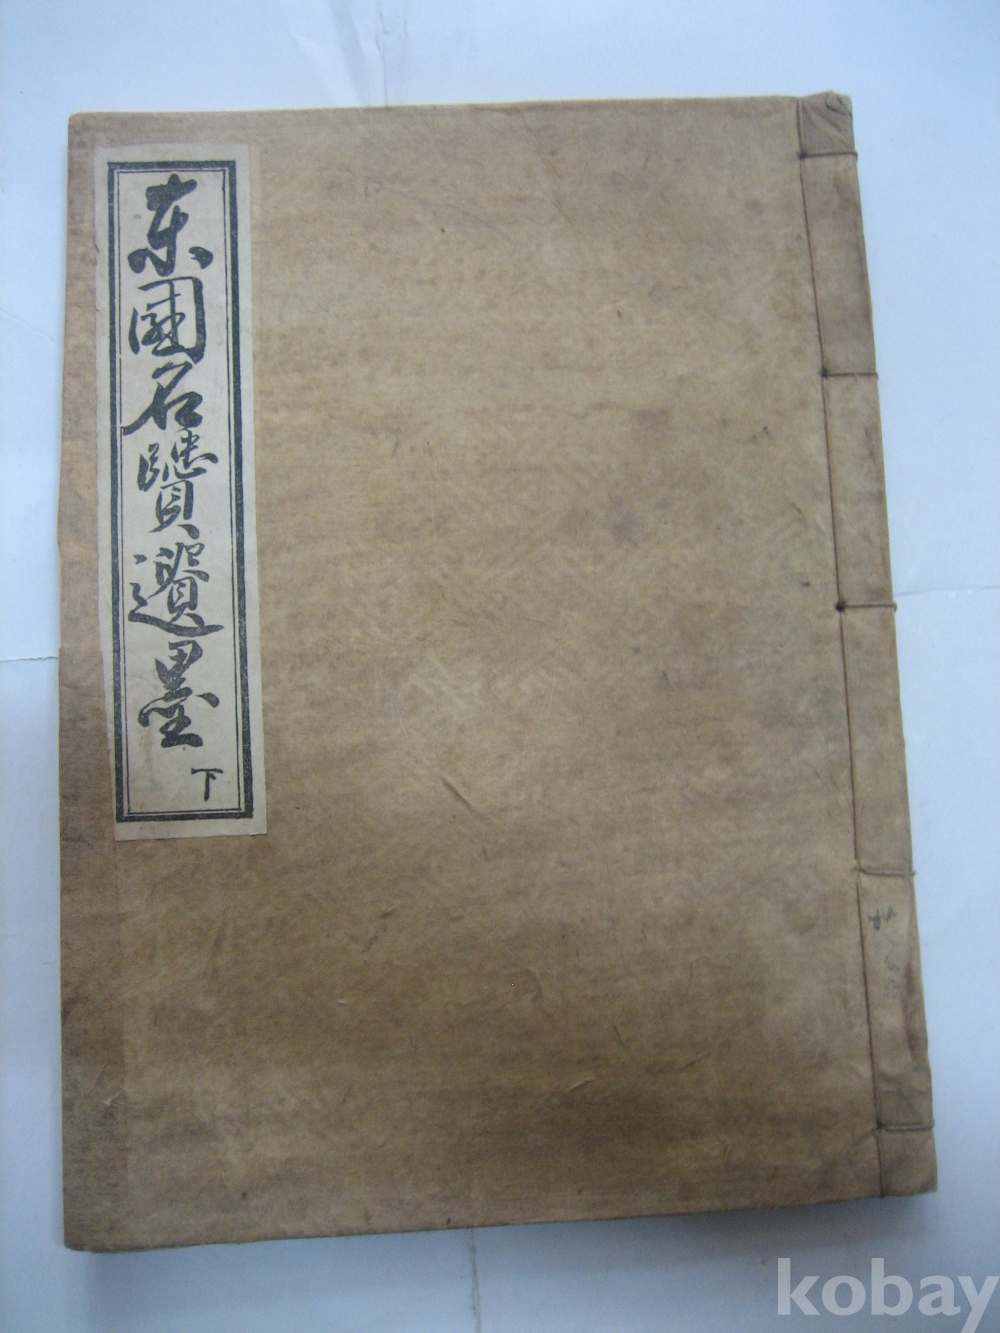 东國名賢遺墨
下
kobay